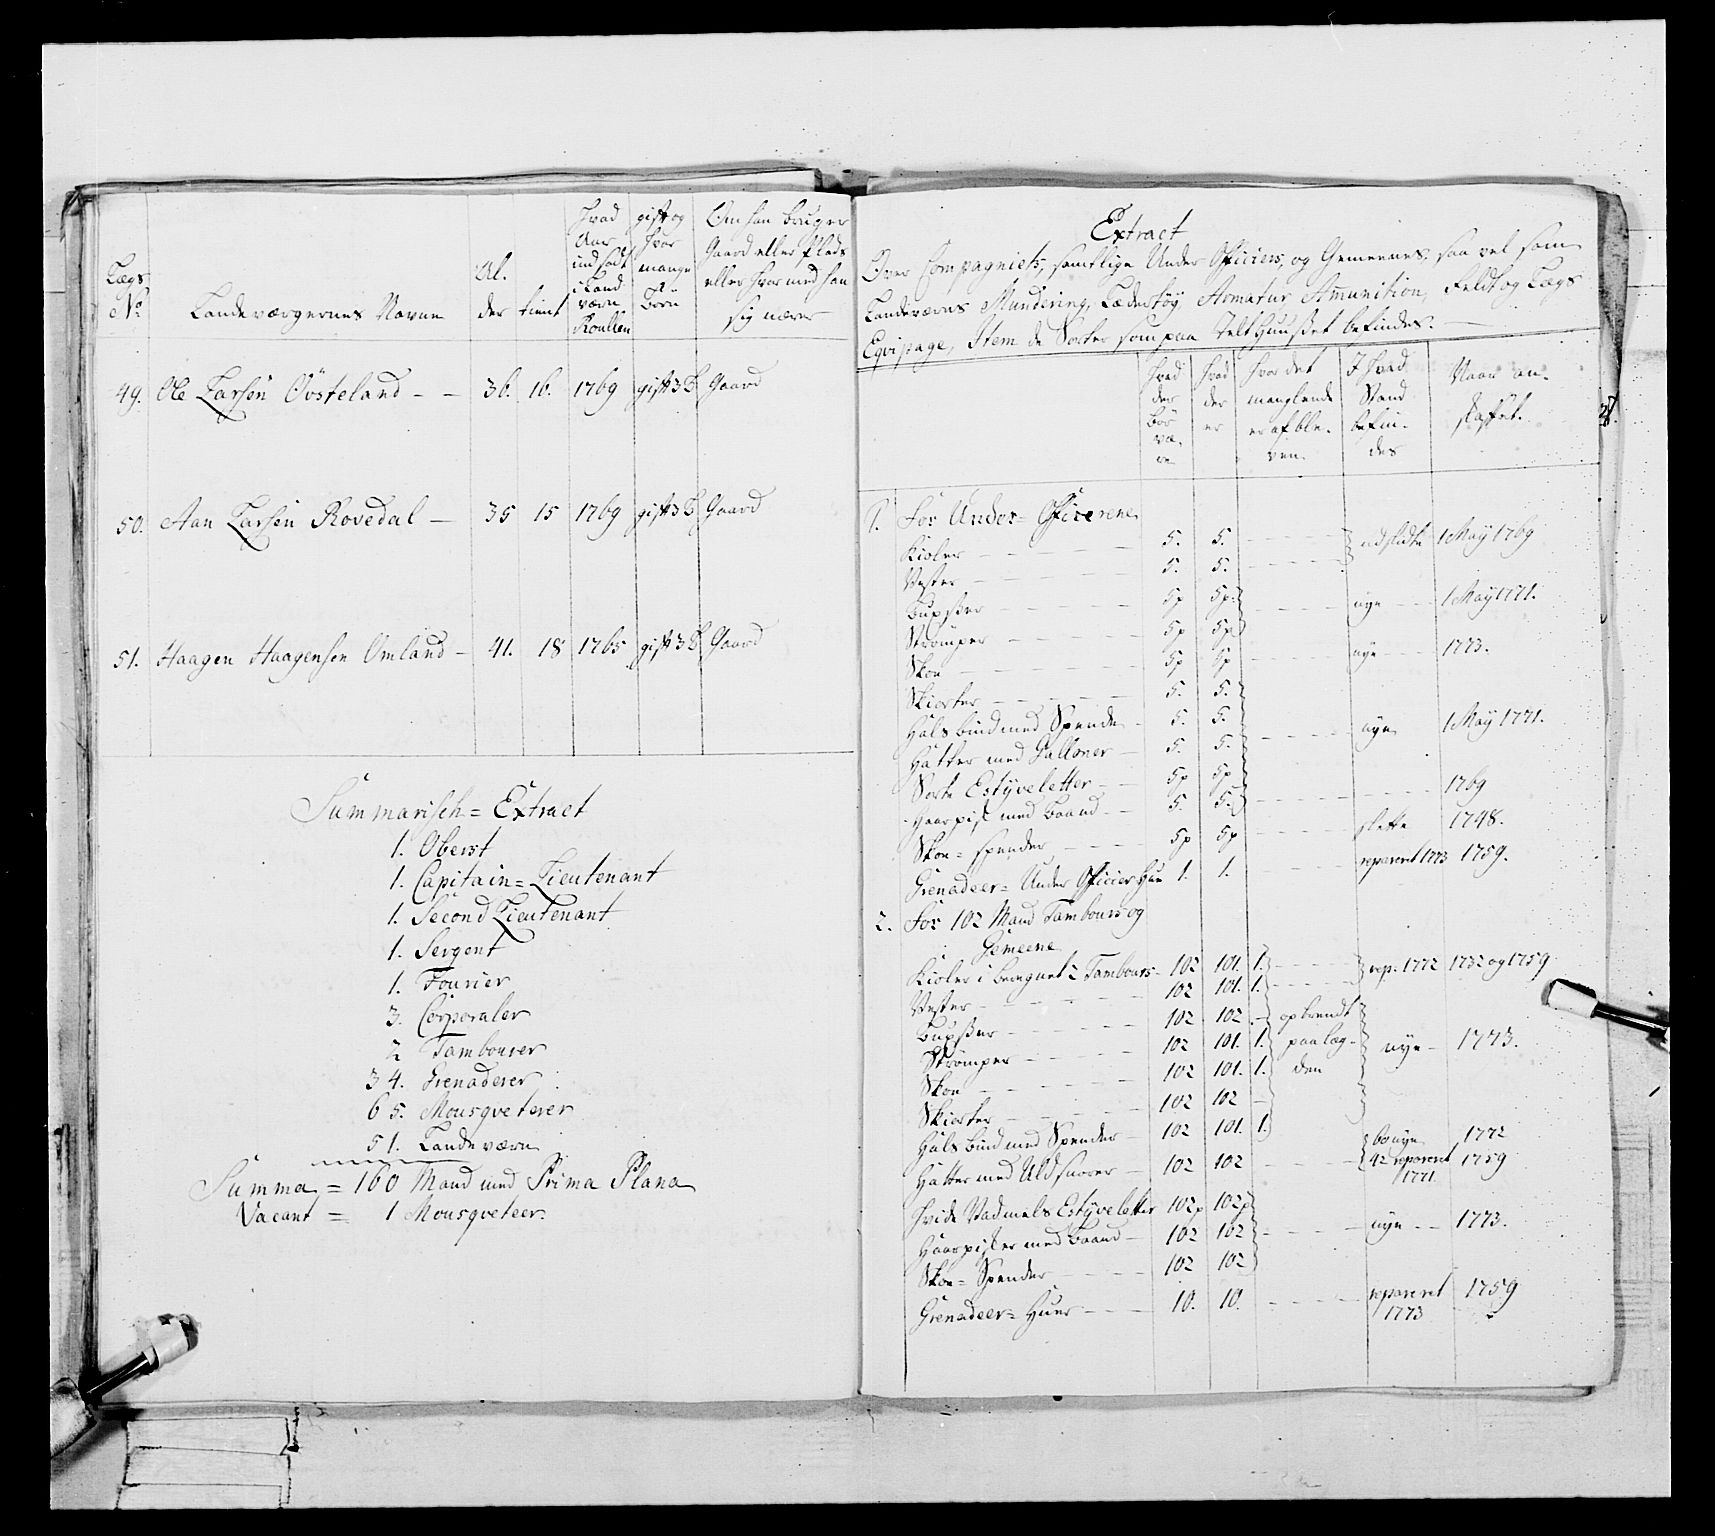 Lægs
No
Landeværgernes Navne
Al-
der
tient
Hvad
Aar
indsadt
i Land
værn
Roullen
gift og
hvor
mange
Börn
Om han bruger
Gaard eller Plads
eller hvor med han
sig nærer
49. Ole Larsen Övsteland - - 36. 16. 1769 gift 3 B. Gaard
50. Aan Larsen Rovedal - 35 15 1769 gift 3 B Gaard
51. Haagen Haagensen Omland - 41. 18 1765 gift 3 B. Gaard
Summarisch = Extract
1. Oberst
1. Capitain = Lieutenant
1. Second Lieutenant
1. Sergent
1. Fourier
3. Corporaler
2 Tambourer
34. Grenaderer
65. Mousqveterer
51. Landeværn
Summa = 160 Mand med Prima Plana
Vacant = 1 Mousqveteer.
Extract
Over Compagniets, samtlige Under Officiers, og Gemeenes, saa vel som
Landeværns Mundering, Lædertöy, Armatur Amunition, Feldt og Lægs
Eqvipage, Item de Sorter som paa Telt Huuset befindes.
Hvad
der
bör
væ-
re
Hvad
der
er
Hvor det
manglende
er af ble-
ven
I hvad
Stand
befin-
des
Naar an-
skaffet.
1. For Under = Officerene
Kioler 5. 5. udslidte 1 May 1769
Vester 5. 5.
Buxser 5p 5p nye 1 May 1771.
Strömper 5p 5p
Skoe 5p 5p nye 1773.
Skiorter 5. 5.
Halsbind med Spende 5. 5. nye 1 May 1771.
Hatter med Galloner 5. 5.
Sorte Estiveletter 5p 5p 1769
Haarpisk med Baand 5. 5.
Skoe = spender 5p 5p slette 1748.
Grenadeer = Under Officier Hue 1. 1. reparert 1773 1759.
2. For 102 Mand Tambours og
Gemeene
Kioler i beregnet 2 Tambours 102 101. 1. rep: 1772 1732 og 1759
Vester 102 101. 1.
Buxser 102 102 - opbrendt
Strömper 102 101. 1. paa læg- nye 1773.
Skoe 102 101. 1. den
Skiorter 102 102 -
Halsbind med Spender 102 101. 1.
60 nye 1772
Hatter med Uldsnorer 102 102 42 reparert 1759
1771
Hvide Vadmels Estiveletter 102p 102p
Haarpisker med Baand 102 102 nye 1773.
Skoe = Spender 102 102
Grenadeer = Huer 10. 10. reparert 1759
1773